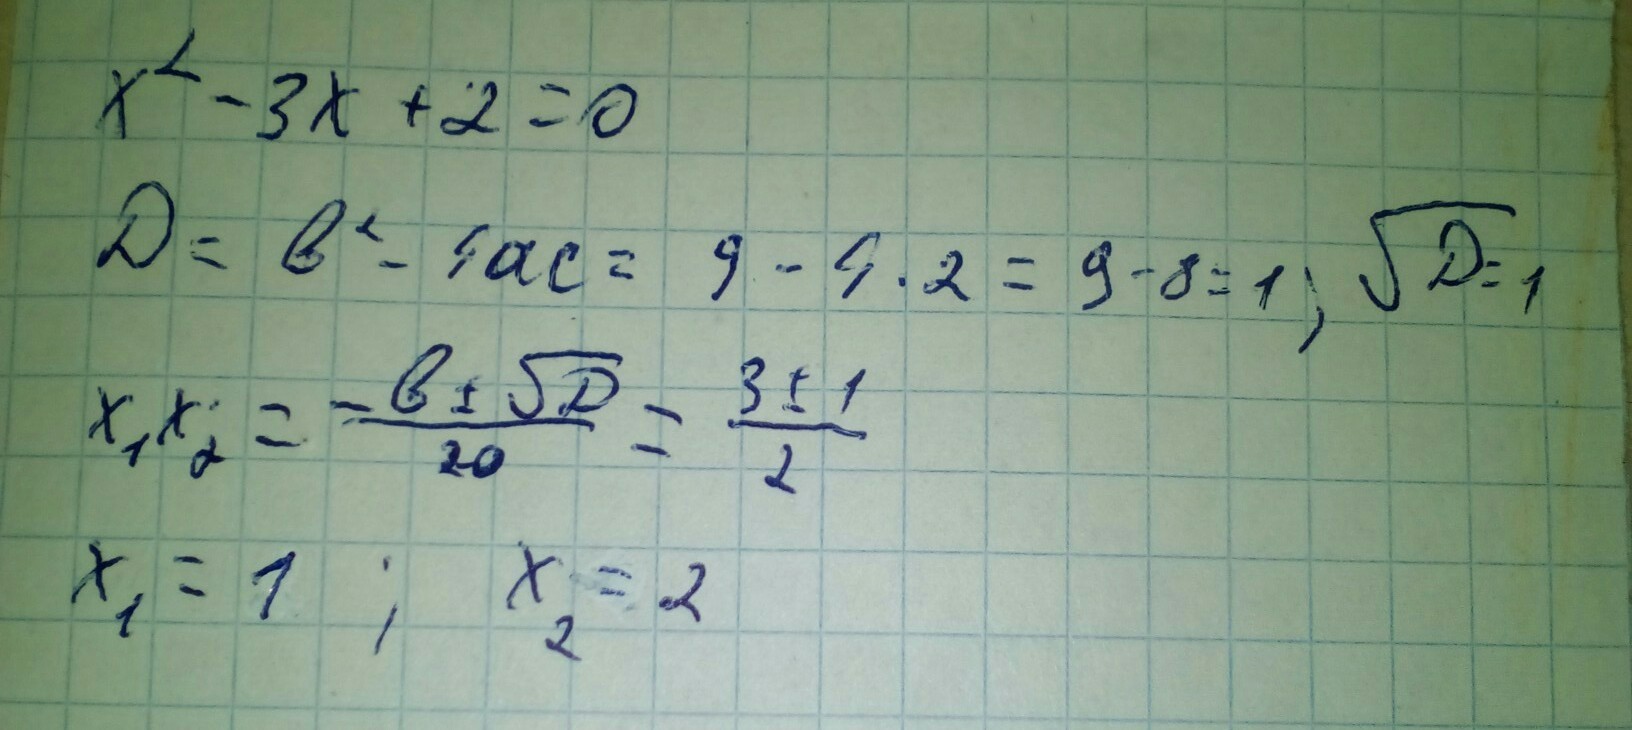 x² - 3x + 2 = 0
D = b² - 4ac = 9 - 4 · 2 = 9 - 8 = 1; √D = 1
x₁x₂ = (-b ± √D)/(2a) = (3 ± 1)/2
x₁ = 1 ; x₂ = 2